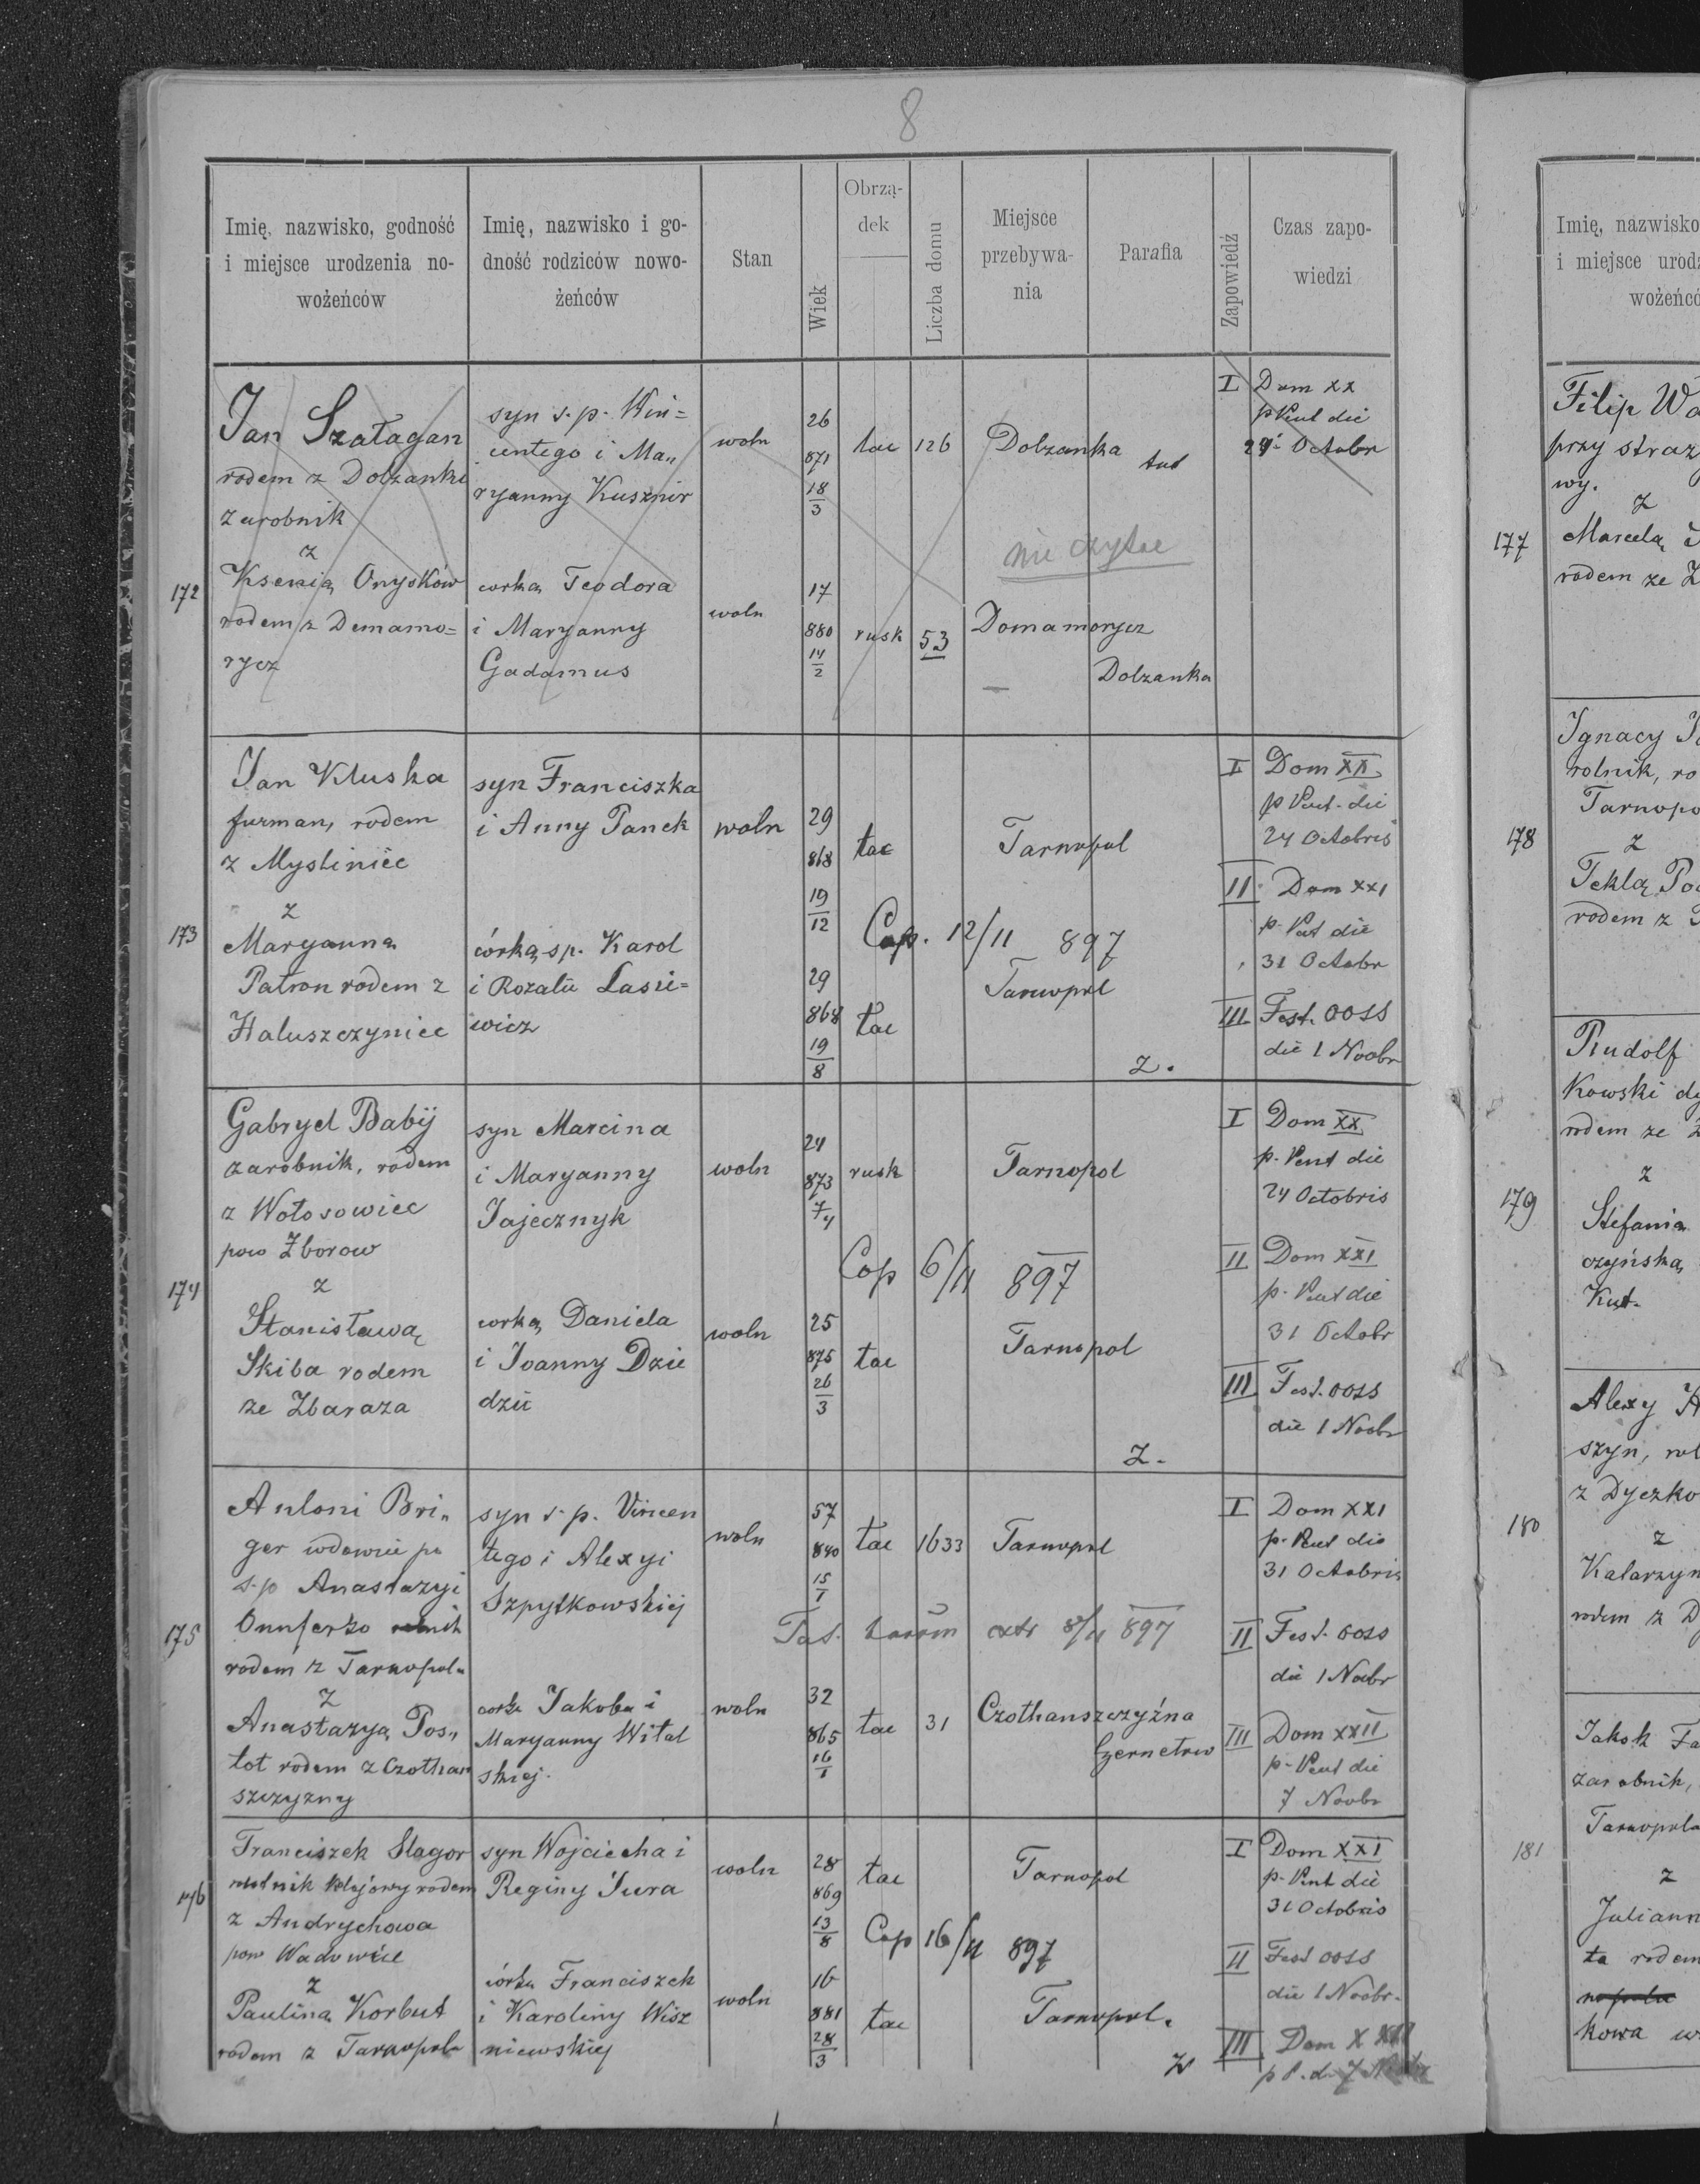 8
Imię, nazwisko, godność
i miejsce urodzenia no-
wożeńców
Imię, nazwisko i go-
dność rodziców nowo-
żeńców
Stan
Wiek
Obrzą-
dek
Liczba domu
Miejsce
przebywa-
nia
Parafia
Zapowiedź
Czas zapo-
wiedzi
172
Jan Szatagan
rodem z Dolzanki
zarobnik
z
Ksenią Onysków
rodem z Demamo=
rycz
syn s. p. Win=
centego i Ma„
ryanny Kusznir
corką Teodora
i Maryanny
Gadamus
woln
woln
26
871
18
3
17
880
14
2
łac 126 Dolzanka tut
nie czytac
rusk 53 Domamorycz
Dolzanka
I Dom XX
p Pent die
24 Octobr
173
Jan Kluska
furman, rodem
z Mysliniec
z
Maryanna
Patron rodem z
Haluszczyniec
syn Franciszka
i Anny Panek
córką sp. Karol
i Rozalii Lasie=
wicz
woln
29
868
19
12
29
868
19
8
łac Tarnopol
Cop. 12/11 897
Tarnopol
łac
z.
I Dom XX
p Pent. die
24 Octobris
II Dom XXI
p. Pent die
31 Octobr
III Fest. OOSS
die 1 Noobr
174
Gabryel Babij
zarobnik, rodem
z Wołosowiec
pow Zborow
z
Stanisławą
Skiba rodem
ze Zbaraza
syn Marcina
i Maryanny
Jajecznyk
corką Daniela
i Joanny Dzie
dzic
woln
woln
24
873
7
4
25
875
26
3
rusk Tarnopol
Cop 6/11 897
łac Tarnopol
z.
I Dom XX
p. Pent die
24 Octobris
II Dom XXI
p. Pent die
31 Octobr
III Fest. OOSS
die 1 Noobr
175
Antoni Bri„
ger wdowiec po
s.p Anastazyi
Onuferko
rodem z Tarnopola
z
Anastazyą Pos„
tot rodem z Czothan
szczyzny
syn s. p. Vincen
tego i Alexyi
Szpytkowskiej
corka Jakoba i
Maryanny Wital
skiej.
woln
woln
57
840
15
1
32
865
16
1
łac 1633 Tarnopol
extr 8/11 897
łac 31 Czothanszczyźna
Czernelow
I Dom XXI
p. Pent die
31 Octobris
II Fest. OOSS
die 1 Noobr
III Dom XXII
p. Pent die
7 Noobr
176
Franciszek Slagor
rodem
z Andrychowa
pow Wadowice
z
Paulina Korbut
rodem z Tarnopola
syn Wojciecha i
Reginy Jura
córka Franciszek
i Karoliny Wisz
niewskiej
woln
woln
28
869
13
8
16
881
28
3
łac Tarnopol
Cop 16/11 897
łac Tarnopol.
z
I Dom XXI
p. Pent die
31 Octobris
II Fest OOSS
die 1 Noobr.
III Dom XXII
p P. d. 7
Imię, nazwisko
i miejsce urodz
wożeńcó
177
Filip Wa
przy straz
wy.
z
Marcelą
rodem ze Z
178
Ignacy
rolnik, ro
Tarnopo
z
Teklą Po
rodem z
179
Rudolf
Kowski
rodem ze
z
Stefania
czyńska
Kut.
180
Alexy H
szyn, rol
z Dyczko
z
Katarzyn
rodem z D
181
Jakob Fa
zarobnik,
Tarnopola
z
Juliann
ta rodem
kowa